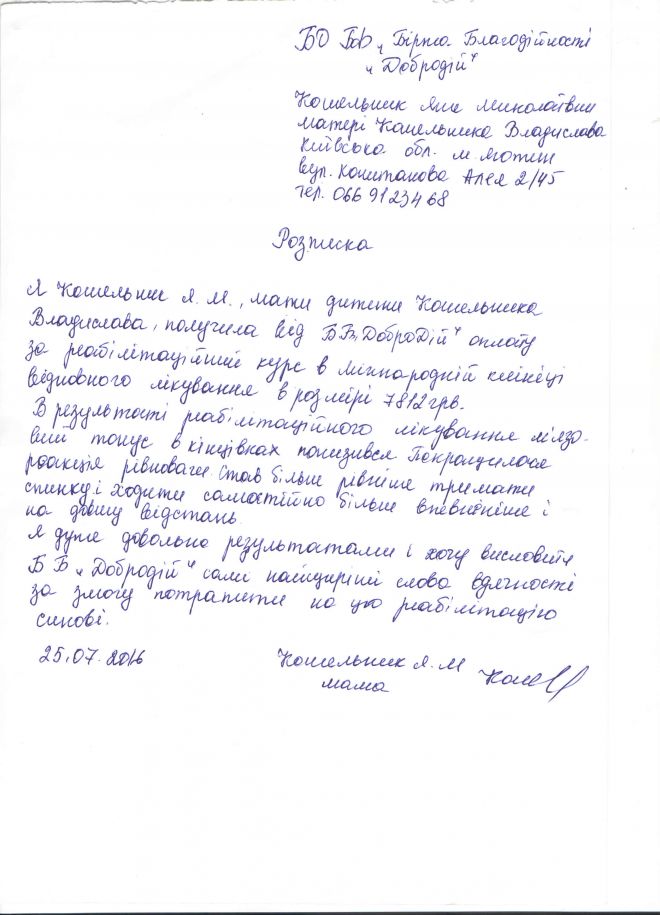 БО БФ „Біржа Благодійності
„Добродій“
Кошельник Яни Миколаївни
матері Кошельника Владислава
Київська обл. м. Яготин
вул. Каштанова Алея 2/45
тел. 066 9123468
Розписка
Я Кошельник Я. М., мати дитини Кошельника
Владислава, получила від ББ„ДоброДій“ оплату
за реабілітаційний курс в міжнародній клініці
відновного лікування в розмірі 7812грв.
В результаті реабілітаційного лікування м'язо-
вий тонус в кінцівках понизився Покращилася
реакція рівноваги. Став більш рівніше тримати
спинку, і ходити самостійно більш впевнініше і
на довшу відстань.
Я дуже довольна результатами і хочу висловити
Б Б „Добродій“ самі найщиріші слова вдячності
за змогу потрапити на цю реабілітацію
синові.
25.07.2016
Кошельник Я. М
мама